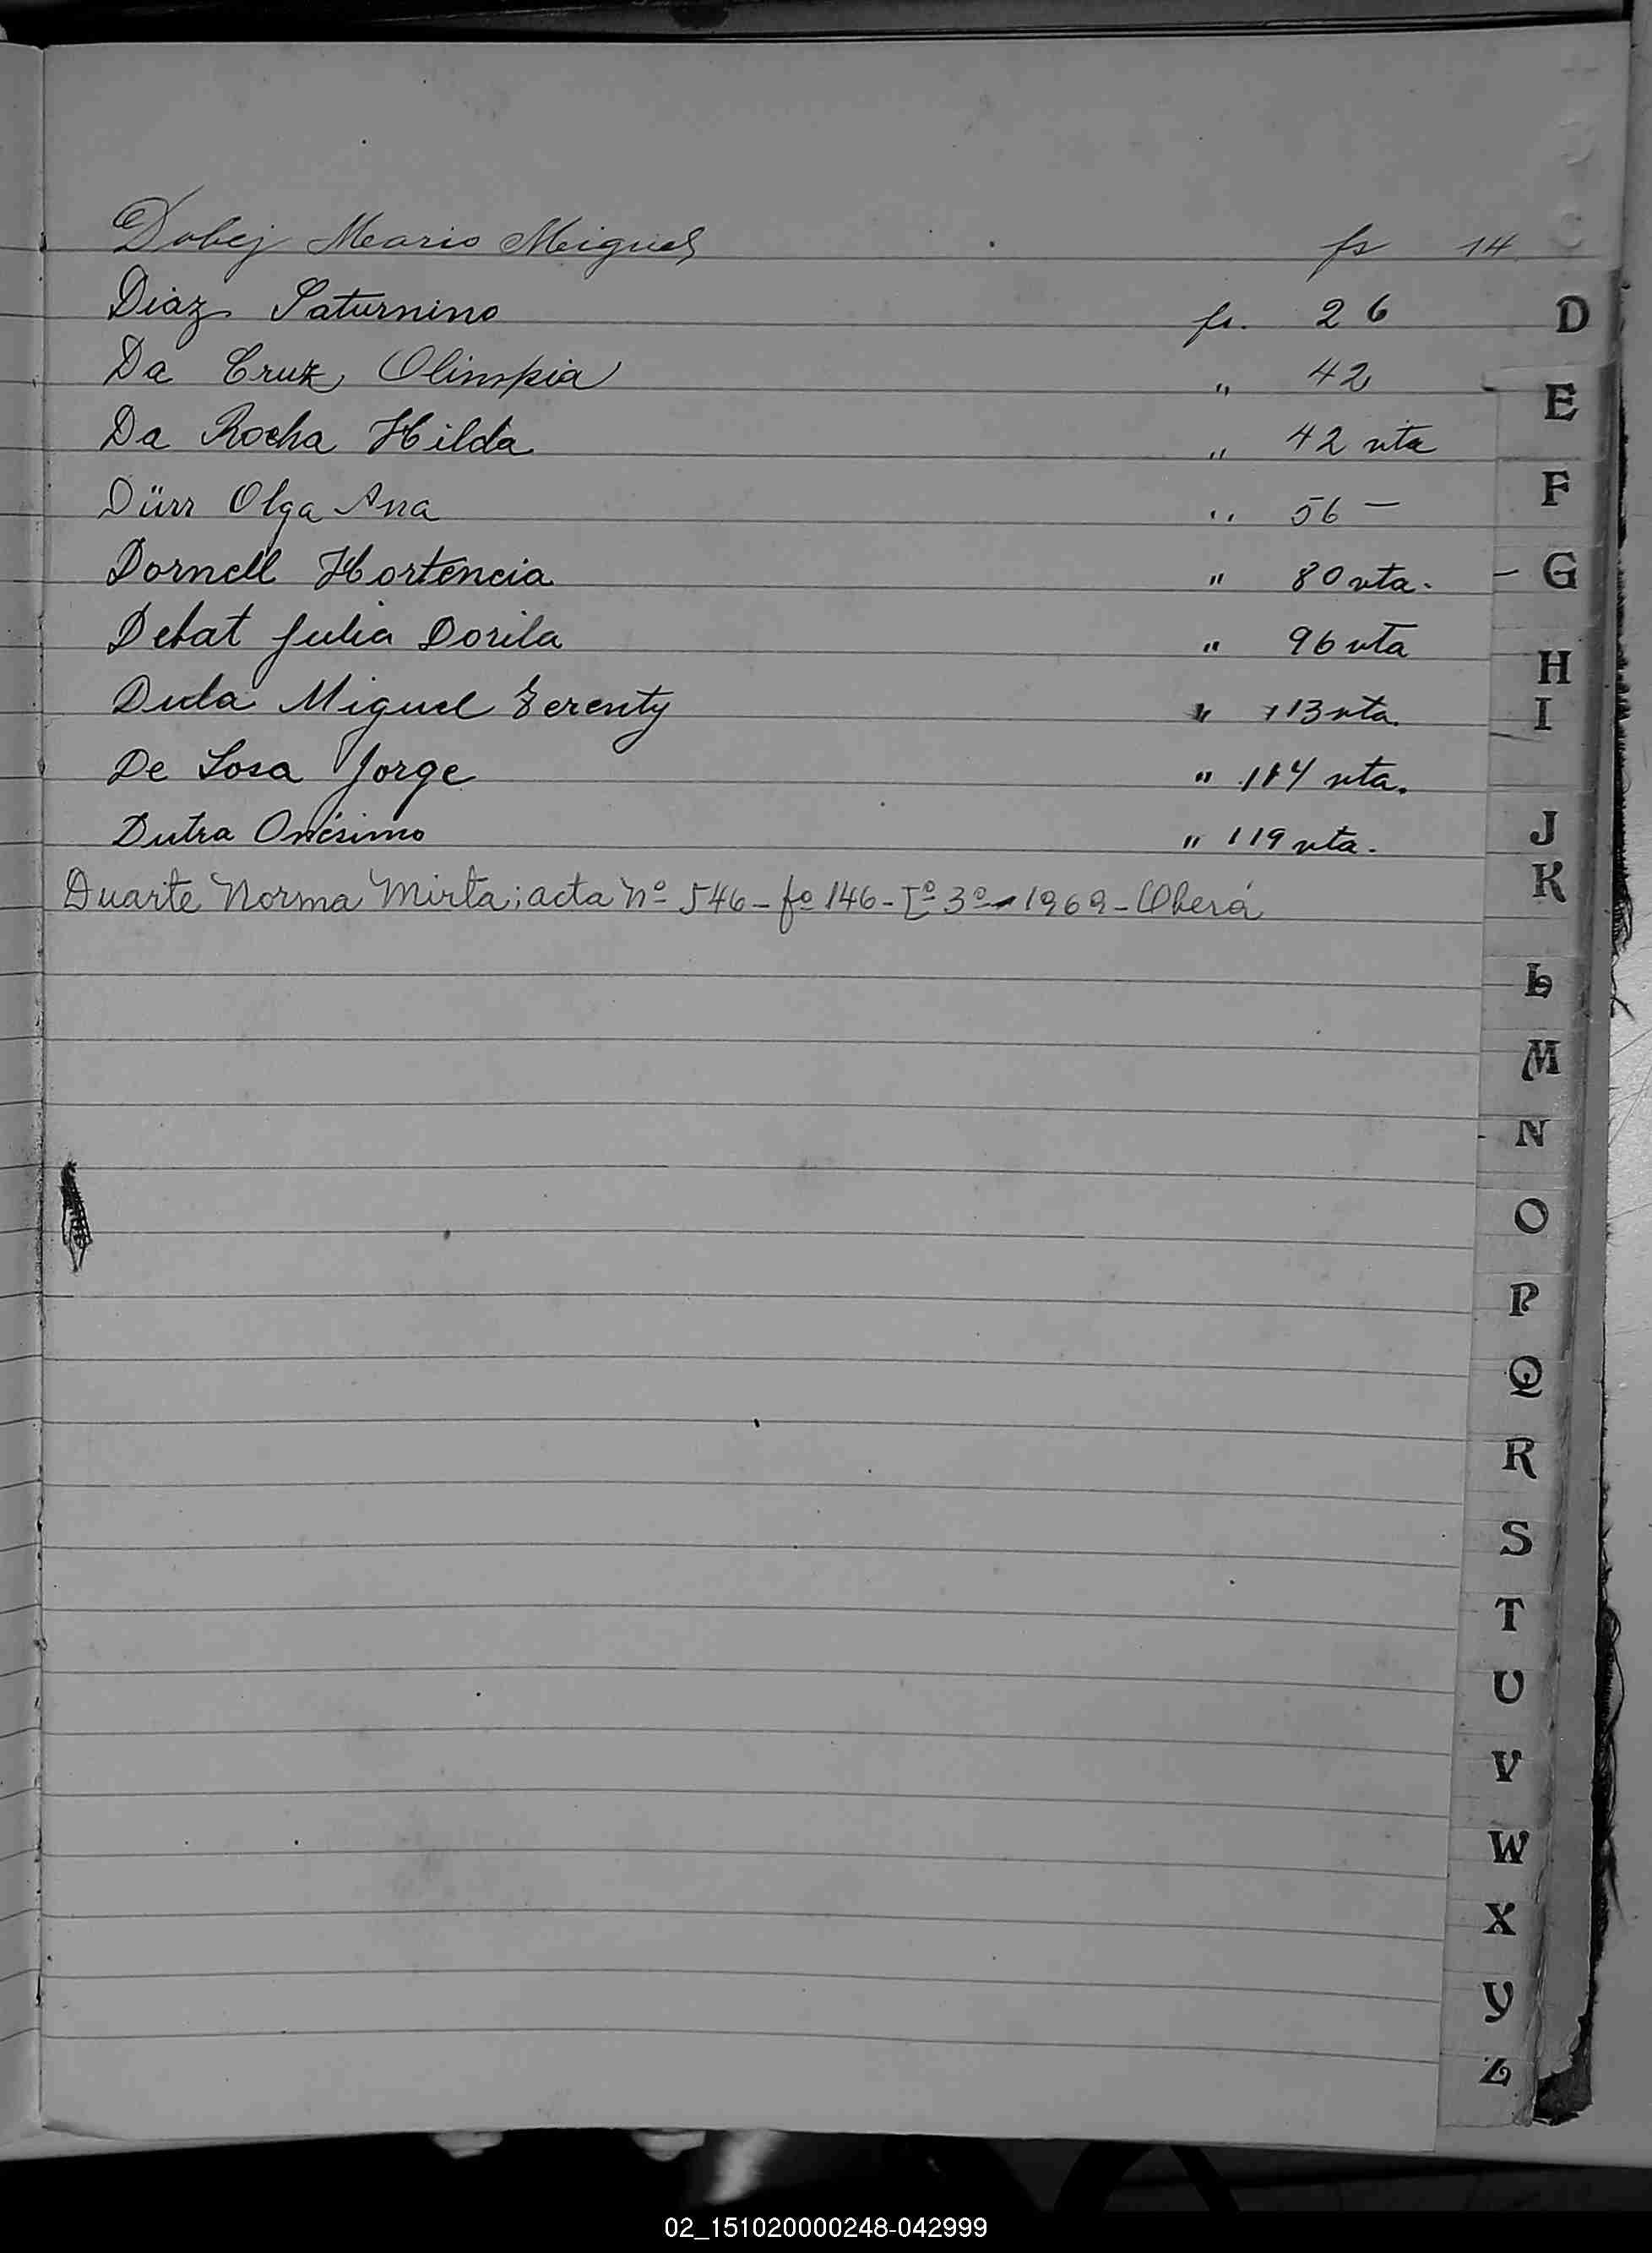 Dobej Mario Miguel fs 14
Diaz Saturnino fs. 26
Da Cruz Olimpia " 42
Da Rocha Hilda " 42 vta
Dürr Olga Ana " 56 —
Dornell Hortencia " 80 vta.
Debat Julia Dorila " 96 vta
Dula Miguel " 113 vta.
De Sosa Jorge " 114 vta.
Dutra Onésimo " 119 vta.
Duarte Norma Mirta; acta nº 546 - fº 146 - Tº 3º - 1969 - Oberá
D
E
F
G
H
I
J
K
L
M
N
O
P
Q
R
S
T
U
V
W
X
Y
Z
02_151020000248-042999